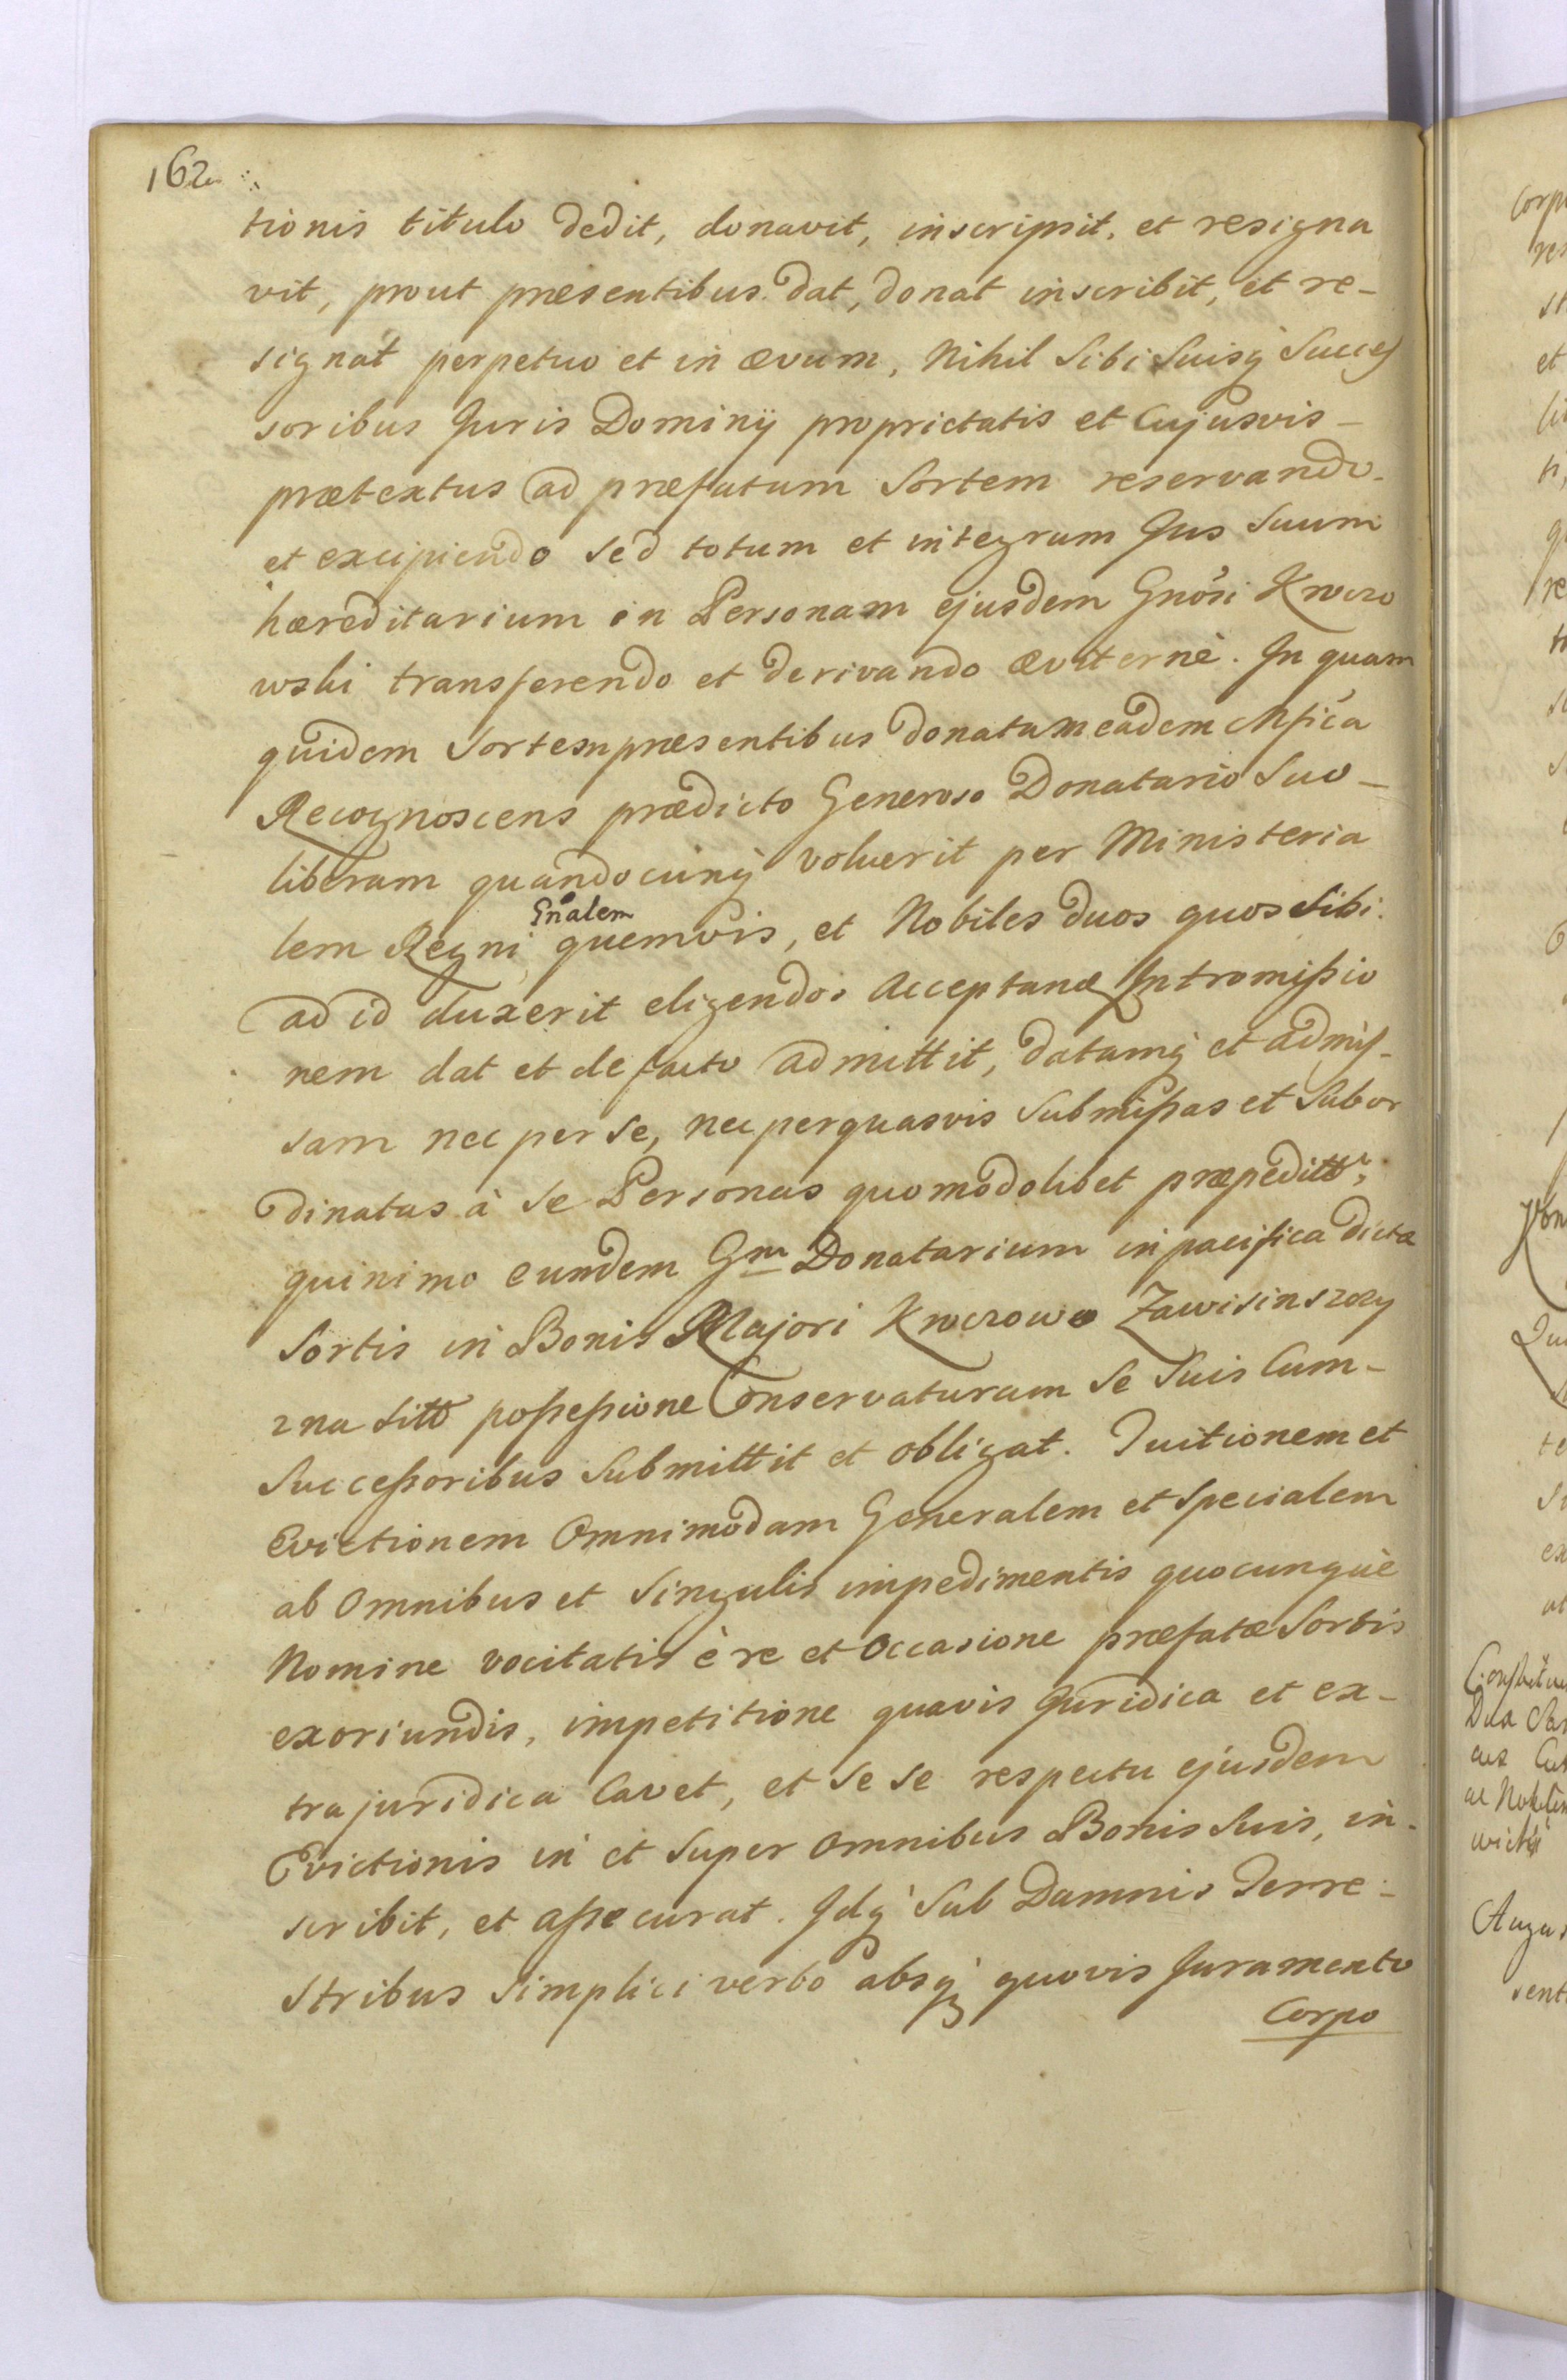 162
tionis titulo dedit, donavit, inscripsit, et resigna
vit, prout præsentibus dat, donat inscribit, et re-
signat perpetuo et in ævum, Nihil Sibi Suisq́ Succes
soribus Juris Dominij proprietatis et Cujusvis -
prætextus ad præfatum Sortem reservando.
et excipiendo sed totum et integrum Jus Suum
hæreditarium in Personam ejusdem Gnosi Kwczo
wski transferendo et derivando æviternè. In quam
quidem Sortem præsentibus donatam eadem Mfica
Recognoscens prædicto Generoso Donatario Suo -
liberam quandocunq́ voluerit per Ministeria
Gnalem
lem Regni quemvis, et Nobiles duos quos Sibi
ad id duxerit eligendos Acceptanæ Intromißio
nem dat et de facto admittit, datamq́ et admis-
sam nec per se, nec per quasvis Submißas et Subor
dinatas à se Personas quomodolibet præpeditt,
quinimo eundem Gm Donatarium in pacifica dictæ
Sortis in Bonis Majori Zawisinszczy
zna sitt poßeßione Conservaturam Se Suis Cum -
Succeßoribus Submittit et obligat. Tuitionem et
Evictionem Omnimodam Generalem et Specialem
ab Omnibus et Singulis impedimentis quocunquè
Nomine vocitatis è re et Occasione præfatæ Sortis
exoriundis, impetitione quavis Juridica et ex-
trajuridica Cavet, et Se se respectu ejusdem
Evictionis in et Super Omnibus Bonis Suis, in-
scribit, et aßecurat. Idq́ Sub Damnis Terre-
stribus Simplici verbo absq́ quovis Juramento
Corpo